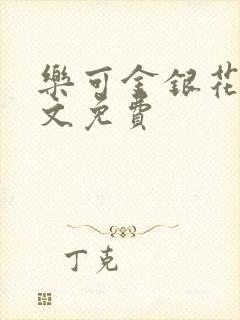 樂可金銀花
文免費
丁克